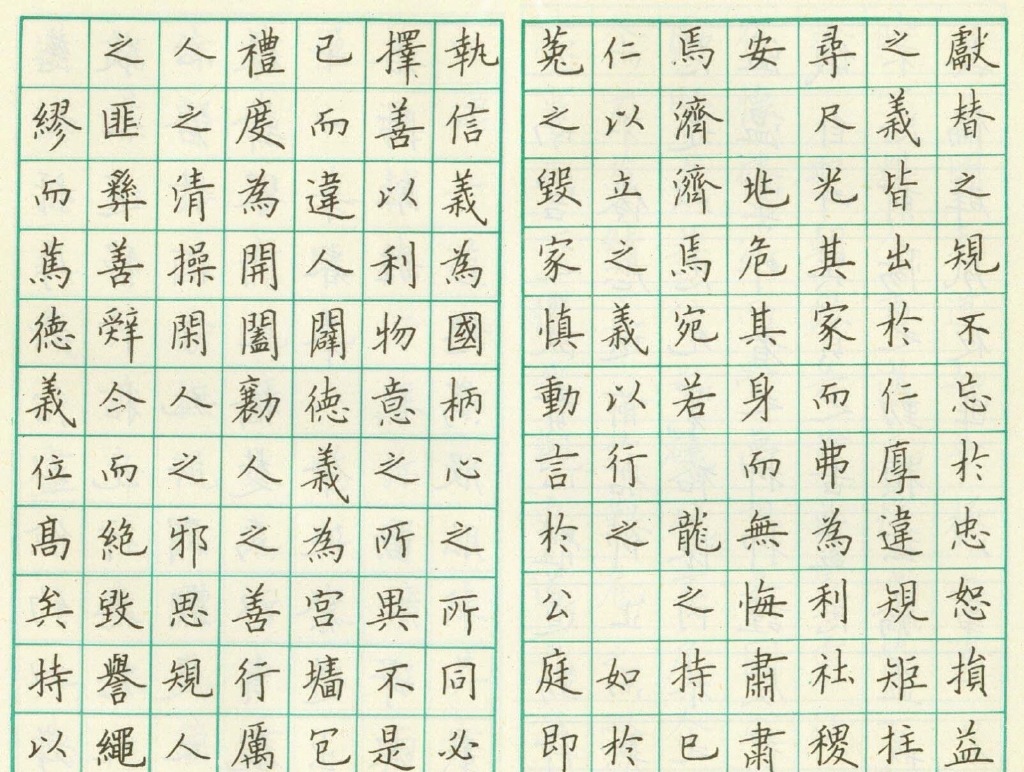 獻替之規不忘於忠恕損益
之義皆出於仁厚違規矩拄
尋尺光其家而弗為利社稷
安危其身而無悔肅肅
焉濟濟焉宛若龍之持已
仁以立之義以行之如於
菟之毀家慎動言於公庭即
執信義為國柄心之所同必
擇善以利物意之所異不是
已而違人闢德義為宮墻包
禮度為開闔勸人之善行厲
人之清操閑人之邪思規人
之匪彝善辭令而絕毀譽繩
繆而篤德義位高矣持以